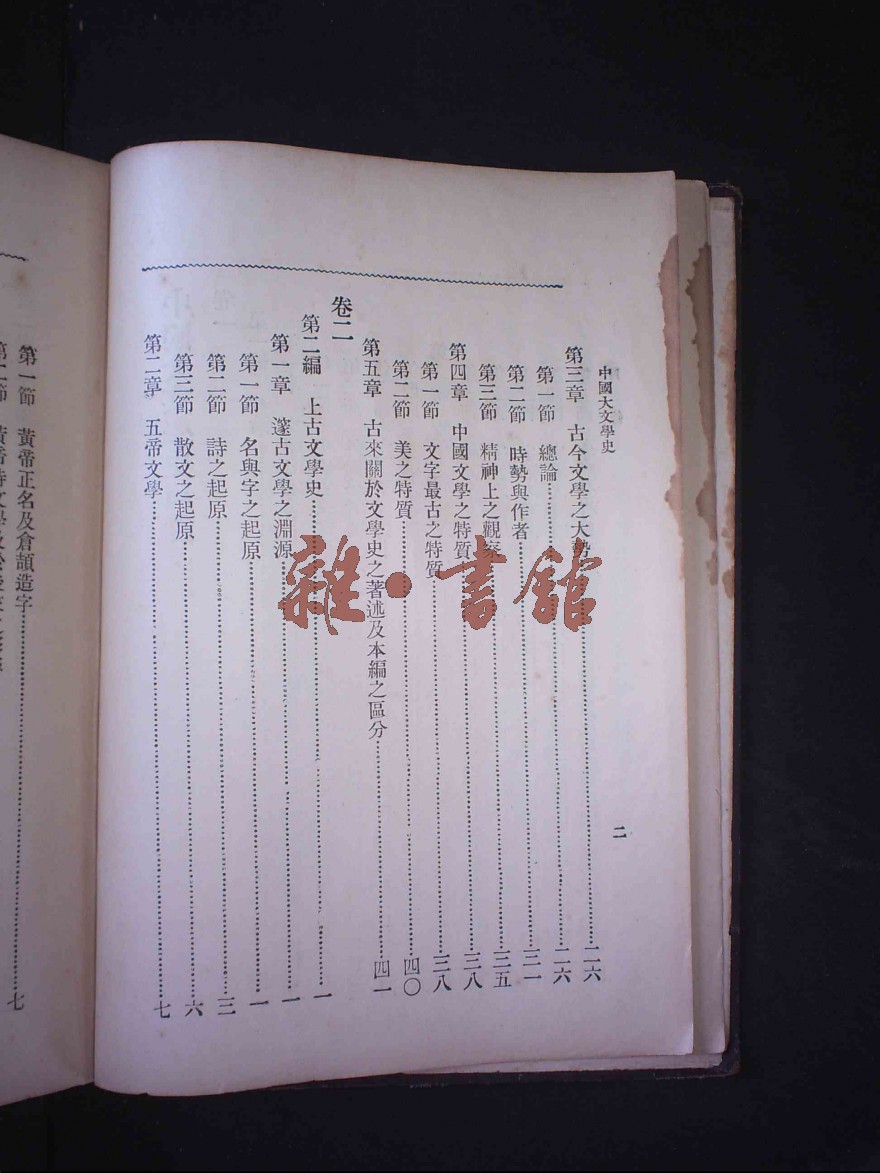 中國大文學史
二
第三章 古今文學之大勢……二六
第一節 總論……二六
第二節 時勢與作者……三一
第三節 精神上之觀察……三五
第四章 中國文學之特質……三八
第一節 文字最古之特質……三八
第二節 美之特質……四〇
第五章 古來關於文學史之著述及本編之區分……四一
卷二
第二編 上古文學史……一
第一章 邃古文學之淵源……一
第一節 名與字之起原……一
第二節 詩之起原……三
第三節 散文之起原……六
第二章 五帝文學……七
第一節 黃帝正名及倉頡造字……七
第二節 黃帝時文學及
雜·書館